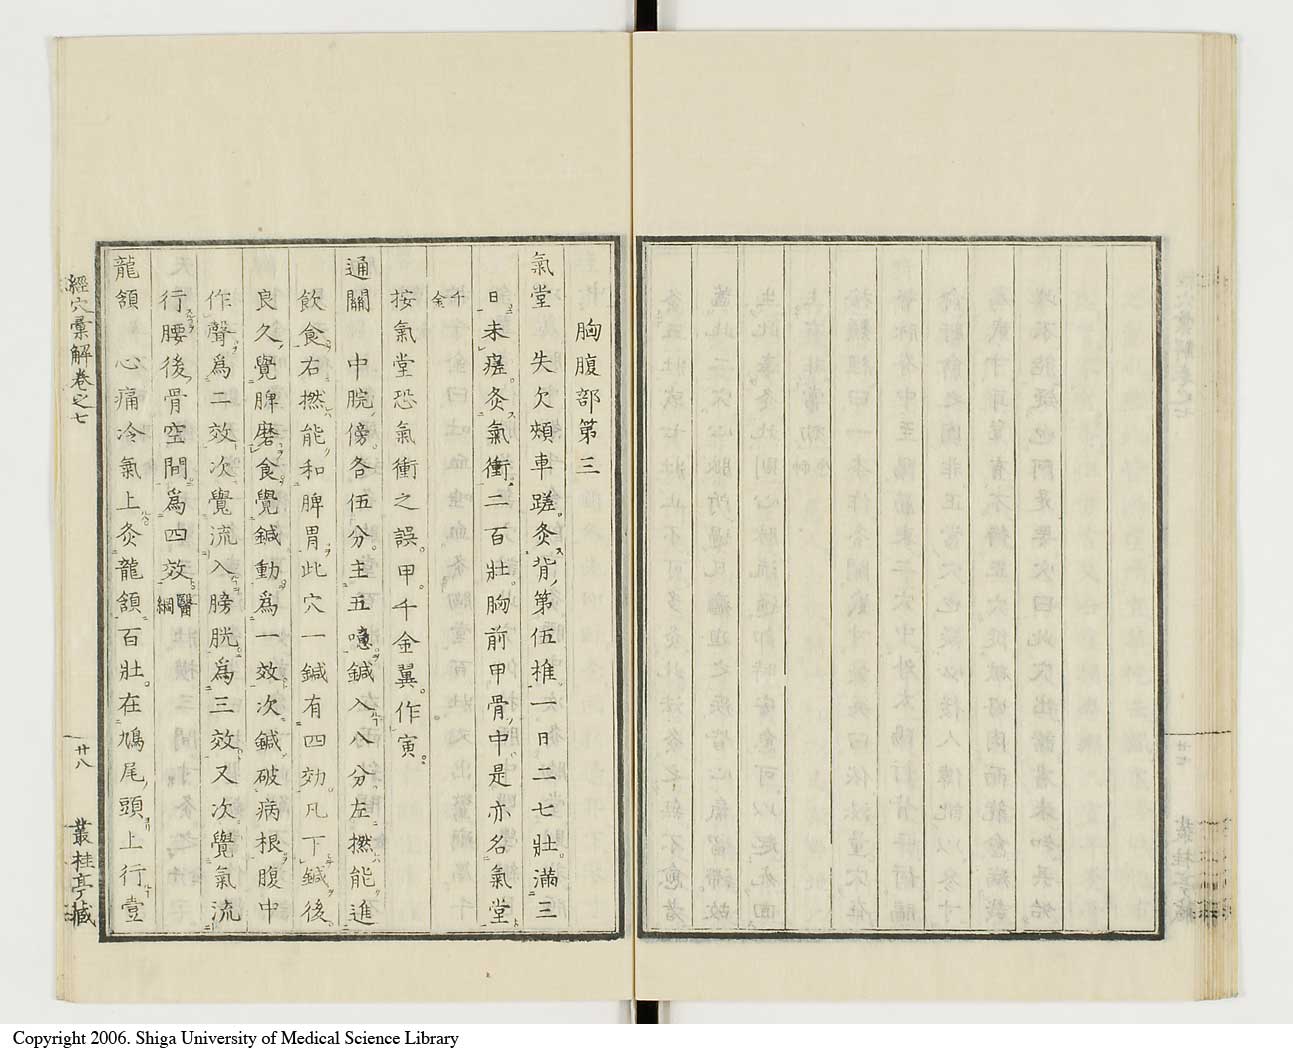 胸腹部第三
氣堂 失欠頰車蹉灸背第伍椎一日二七壯滿三
日未瘥灸氣衝二百壯胸前甲骨中是亦名氣堂
千金
按氣堂恐氣衝之誤甲千金翼作寅
通關 中脘傍各伍分主五噫鍼入八分左撚能進
飲食右撚能和脾胃此穴一鍼有四効凡下鍼後
良久覺脾磨食覺鍼動為一效次鍼破病根腹中
作聲為二效次覺流入膀胱為三效又次覺氣流
行腰後骨空間為四效醫綱
龍頷 心痛冷氣上灸龍頷百壯在鳩尾頭上行壹
經穴彙解卷之七
廿八
叢桂亭藏
Copyright 2006. Shiga University of Medical Science Library